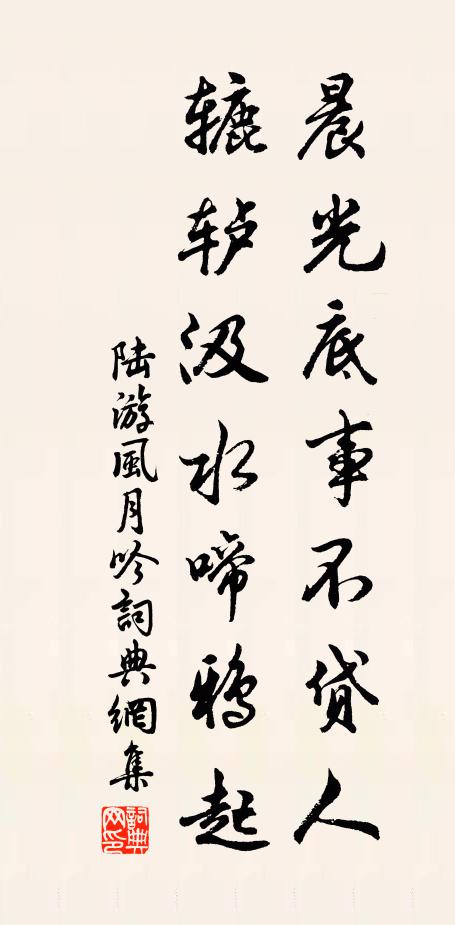 晨光底事不贷人
辘轳汲水啼鸦起
陆游風月吟詞典網集
詞典网印